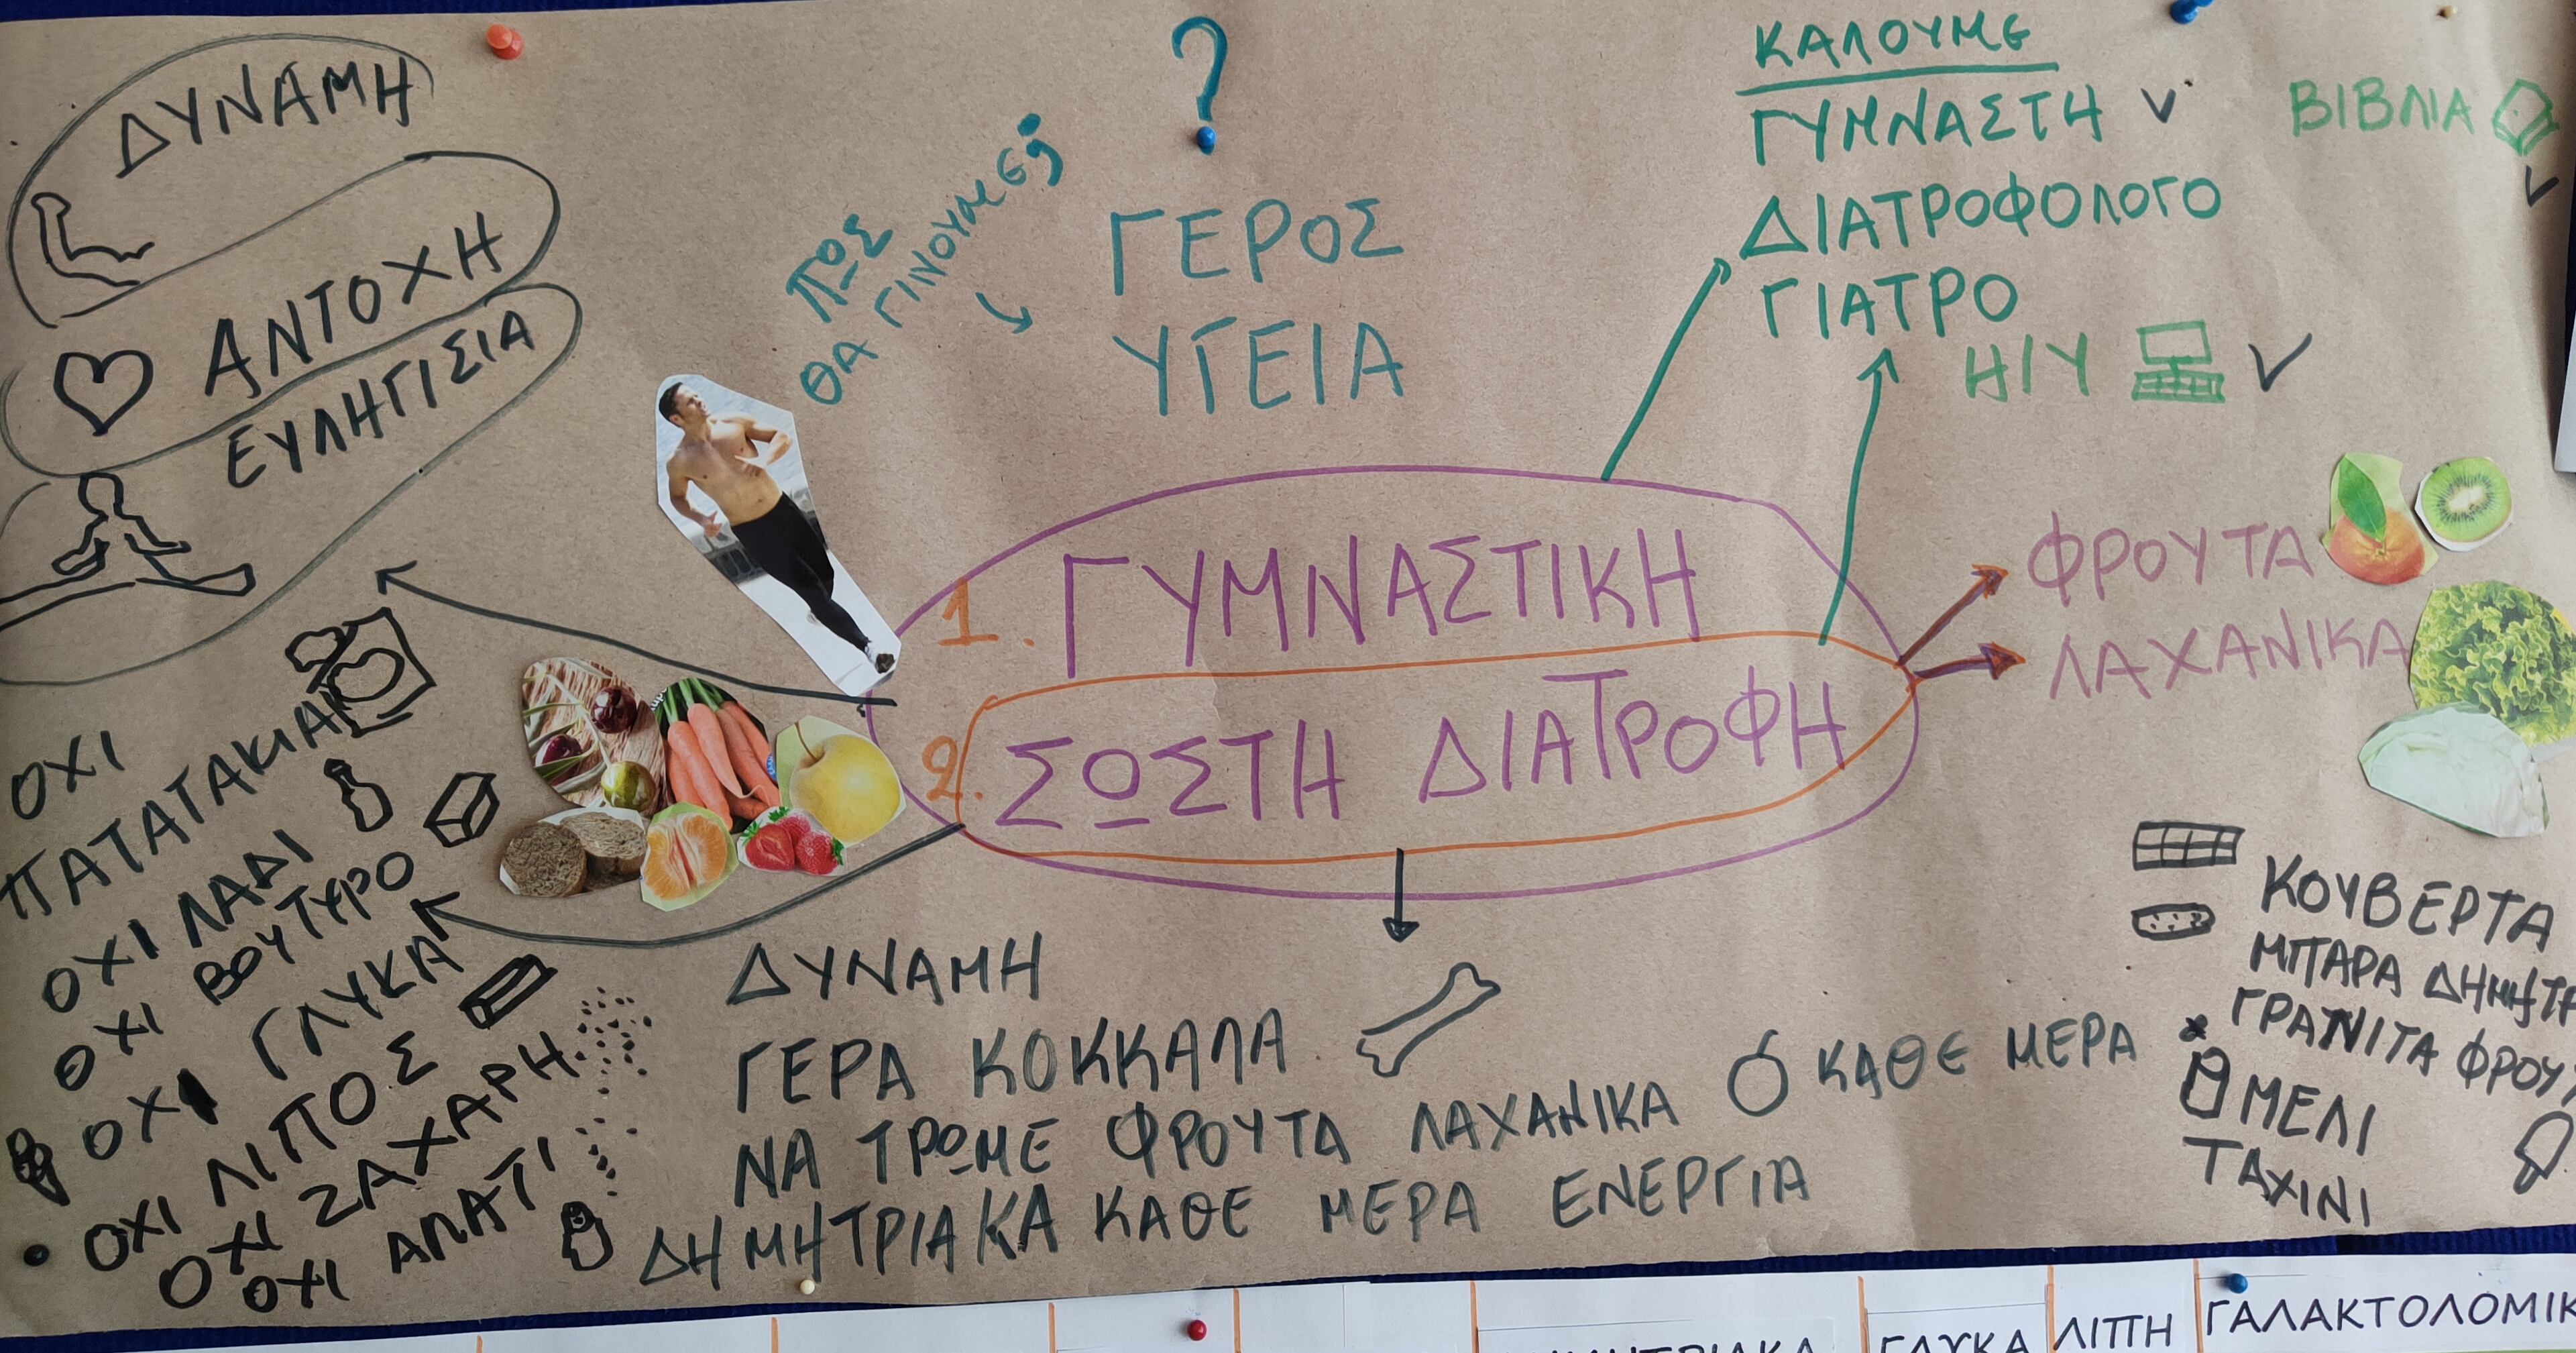 ΔΥΝΑΜΗ
ΑΝΤΟΧΗ
ΕΥΛΗΓΙΣΙΑ
ΠΩΣ
ΘΑ ΓΙΝΟΥΜΕ
?
ΓΕΡΟΣ
ΥΓΕΙΑ
ΚΑΛΟΥΜΕ
ΓΥΜΝΑΣΤΗ ✓
ΔΙΑΤΡΟΦΟΛΟΓΟ
ΓΙΑΤΡΟ
Η/Υ ✓
ΒΙΒΛΙΑ ✓
1. ΓΥΜΝΑΣΤΙΚΗ
2. ΣΩΣΤΗ ΔΙΑΤΡΟΦΗ
ΦΡΟΥΤΑ
ΛΑΧΑΝΙΚΑ
ΟΧΙ
ΠΑΤΑΤΑΚΙΑ
ΟΧΙ ΛΑΔΙ
ΟΧΙ ΒΟΥΤΥΡΟ
ΟΧΙ ΓΛΥΚΑ
ΟΧΙ ΛΙΠΟΣ
ΟΧΙ ΖΑΧΑΡΗ
ΟΧΙ ΑΛΑΤΙ
ΔΥΝΑΜΗ
ΓΕΡΑ ΚΟΚΚΑΛΑ
ΝΑ ΤΡΩΜΕ ΦΡΟΥΤΑ ΛΑΧΑΝΙΚΑ ΚΑΘΕ ΜΕΡΑ
ΔΗΜΗΤΡΙΑΚΑ ΚΑΘΕ ΜΕΡΑ ΕΝΕΡΓΙΑ
ΚΟΥΒΕΡΤΑ
ΜΠΑΡΑ ΔΗΜΗΤΡ
ΓΡΑΝΙΤΑ ΦΡΟΥ
ΜΕΛΙ
ΤΑΧΙΝΙ
ΓΛΥΚΑ
ΛΙΠΗ
ΓΑΛΑΚΤΟΛΟΜΙΚ